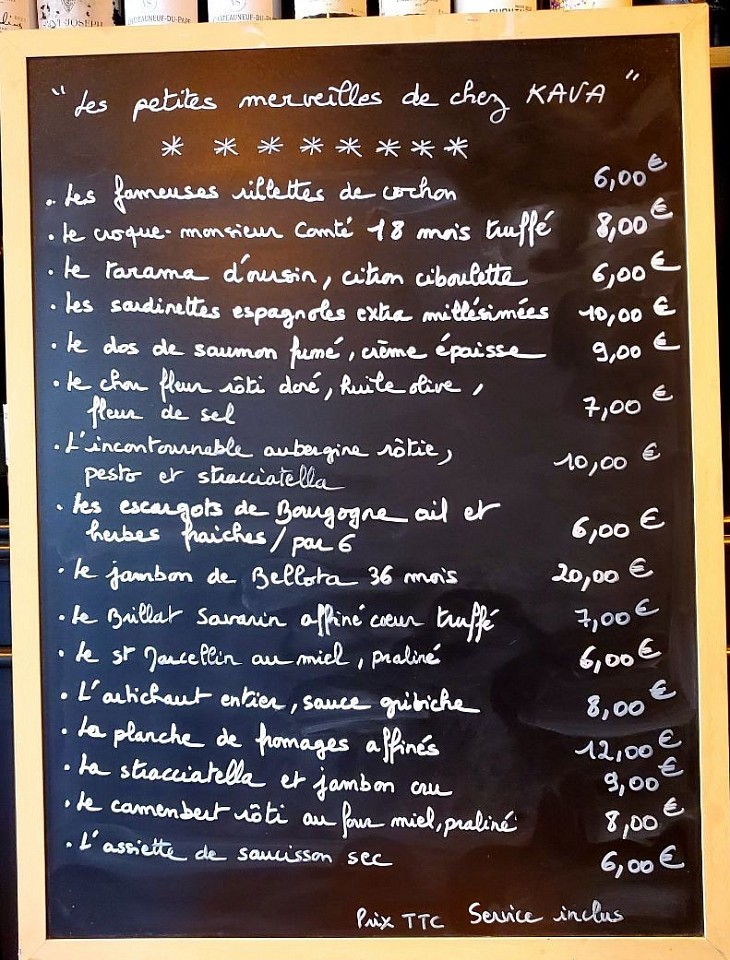 ST JOSEPH CHÂTEAUNEUF-DU-PAPE CHÂTEAUNEUF-DU-PAPE
"Les petites merveilles de chez KAVA"
* * * * * * * *
. Les fameuses rillettes de cochon 6,00€
. Le croque-monsieur Comté 18 mois truffé 8,00€
. Le tarama d'oursin, citron ciboulette 6,00€
. Les sardinettes espagnoles extra millésimées 10,00€
. Le dos de saumon fumé, crème épaisse 9,00€
. Le chou fleur rôti doré, huile olive,
fleur de sel 7,00€
. L'incontournable aubergine rôtie,
pesto et stracciatella 10,00€
. Les escargots de Bourgogne ail et
herbes fraiches/par 6 6,00€
. Le jambon de Bellota 36 mois 20,00€
. Le Brillat Savarin affiné coeur truffé 7,00€
. Le st Marcellin au miel, praliné 6,00€
. L'artichaut entier, sauce gribiche 8,00€
. La planche de fromages affinés 12,00€
. La stracciatella et jambon cru 9,00€
. Le camembert rôti au four miel, praliné 8,00€
. L'assiette de saucisson sec 6,00€
Prix TTC Service inclus